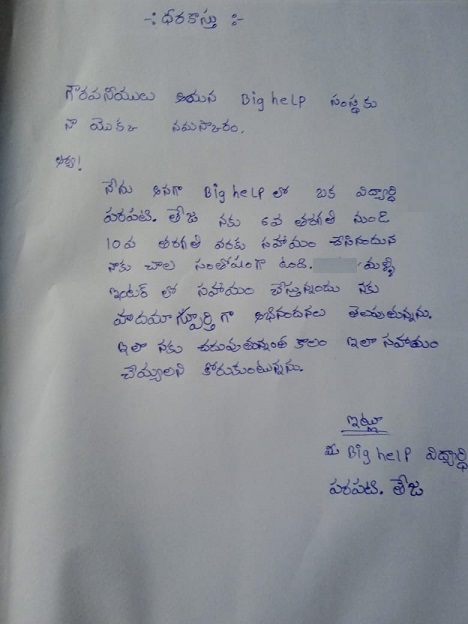 -: ధరకాస్తు :-
గౌరవనీయులు అయిన Big help సంస్థకు
నా యొక్క నమస్కారం.
అయ్య!
నేను అనగా Big help లో ఒక విద్యార్ధి
పరపటి. తేజ నకు 6వ తరగతి నుండి
10వ తరగతి వరకు సహాయం చేసినందున
నాకు చాల సంతోషంగా ఉంది. మళ్ళి
ఇంటర్ లో సహాయం చేస్తున్నందు నకు
హదయాస్పూర్తి గా అభినందనలు తెలుపుతున్నను.
ఇలా నకు చదువుతున్నంత కాలం ఇలా సహాయం
చేయ్యలని కోరుకుంటున్నను.
ఇట్లూ
మీ Big help విద్యార్ధి
పరపటి. తేజ